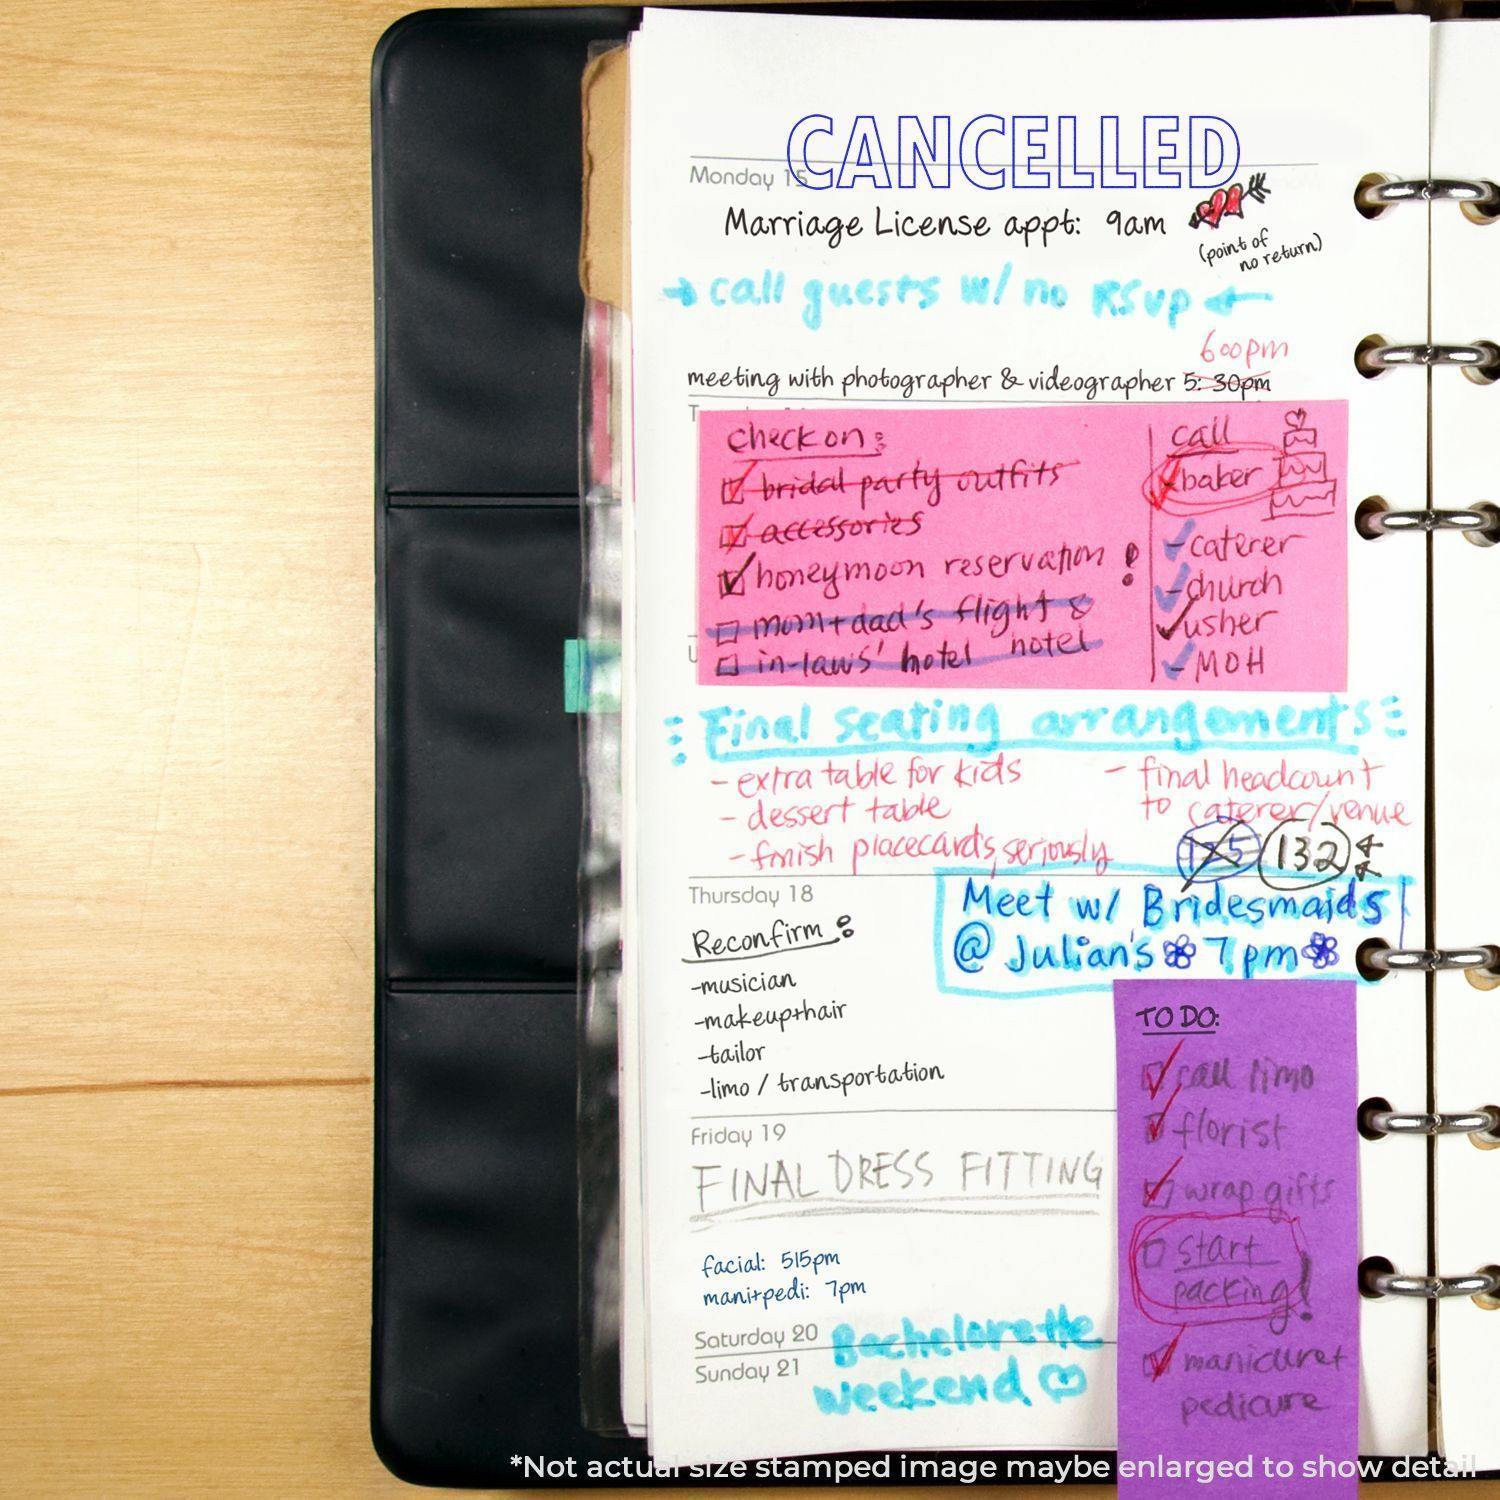 CANCELLED
Monday 15
Marriage License appt: 9am
(point of
no return)
→ call guests w/ no RSVP ←
600pm
meeting with photographer & videographer 5:30pm
check on:
bridal party outfits
accessories
honeymoon reservation !
mom+dad's flight & hotel
in-laws' hotel
call
-baker
-caterer
-church
usher
-MOH
Final seating arrangements
- extra table for kids
- dessert table
- finish placecards, seriously
- final headcount
to caterer/venue
125 132
Thursday 18
Reconfirm:
-musician
-makeup+hair
-tailor
-limo / transportation
Meet w/ Bridesmaids
@ Julian's 7pm
TO DO:
call limo
florist
wrap gifts
start
packing!
manicure+
pedicure
Friday 19
FINAL DRESS FITTING
facial: 515pm
mani+pedi: 7pm
Saturday 20
Sunday 21
Bachelorette
weekend
*Not actual size stamped image maybe enlarged to show detail